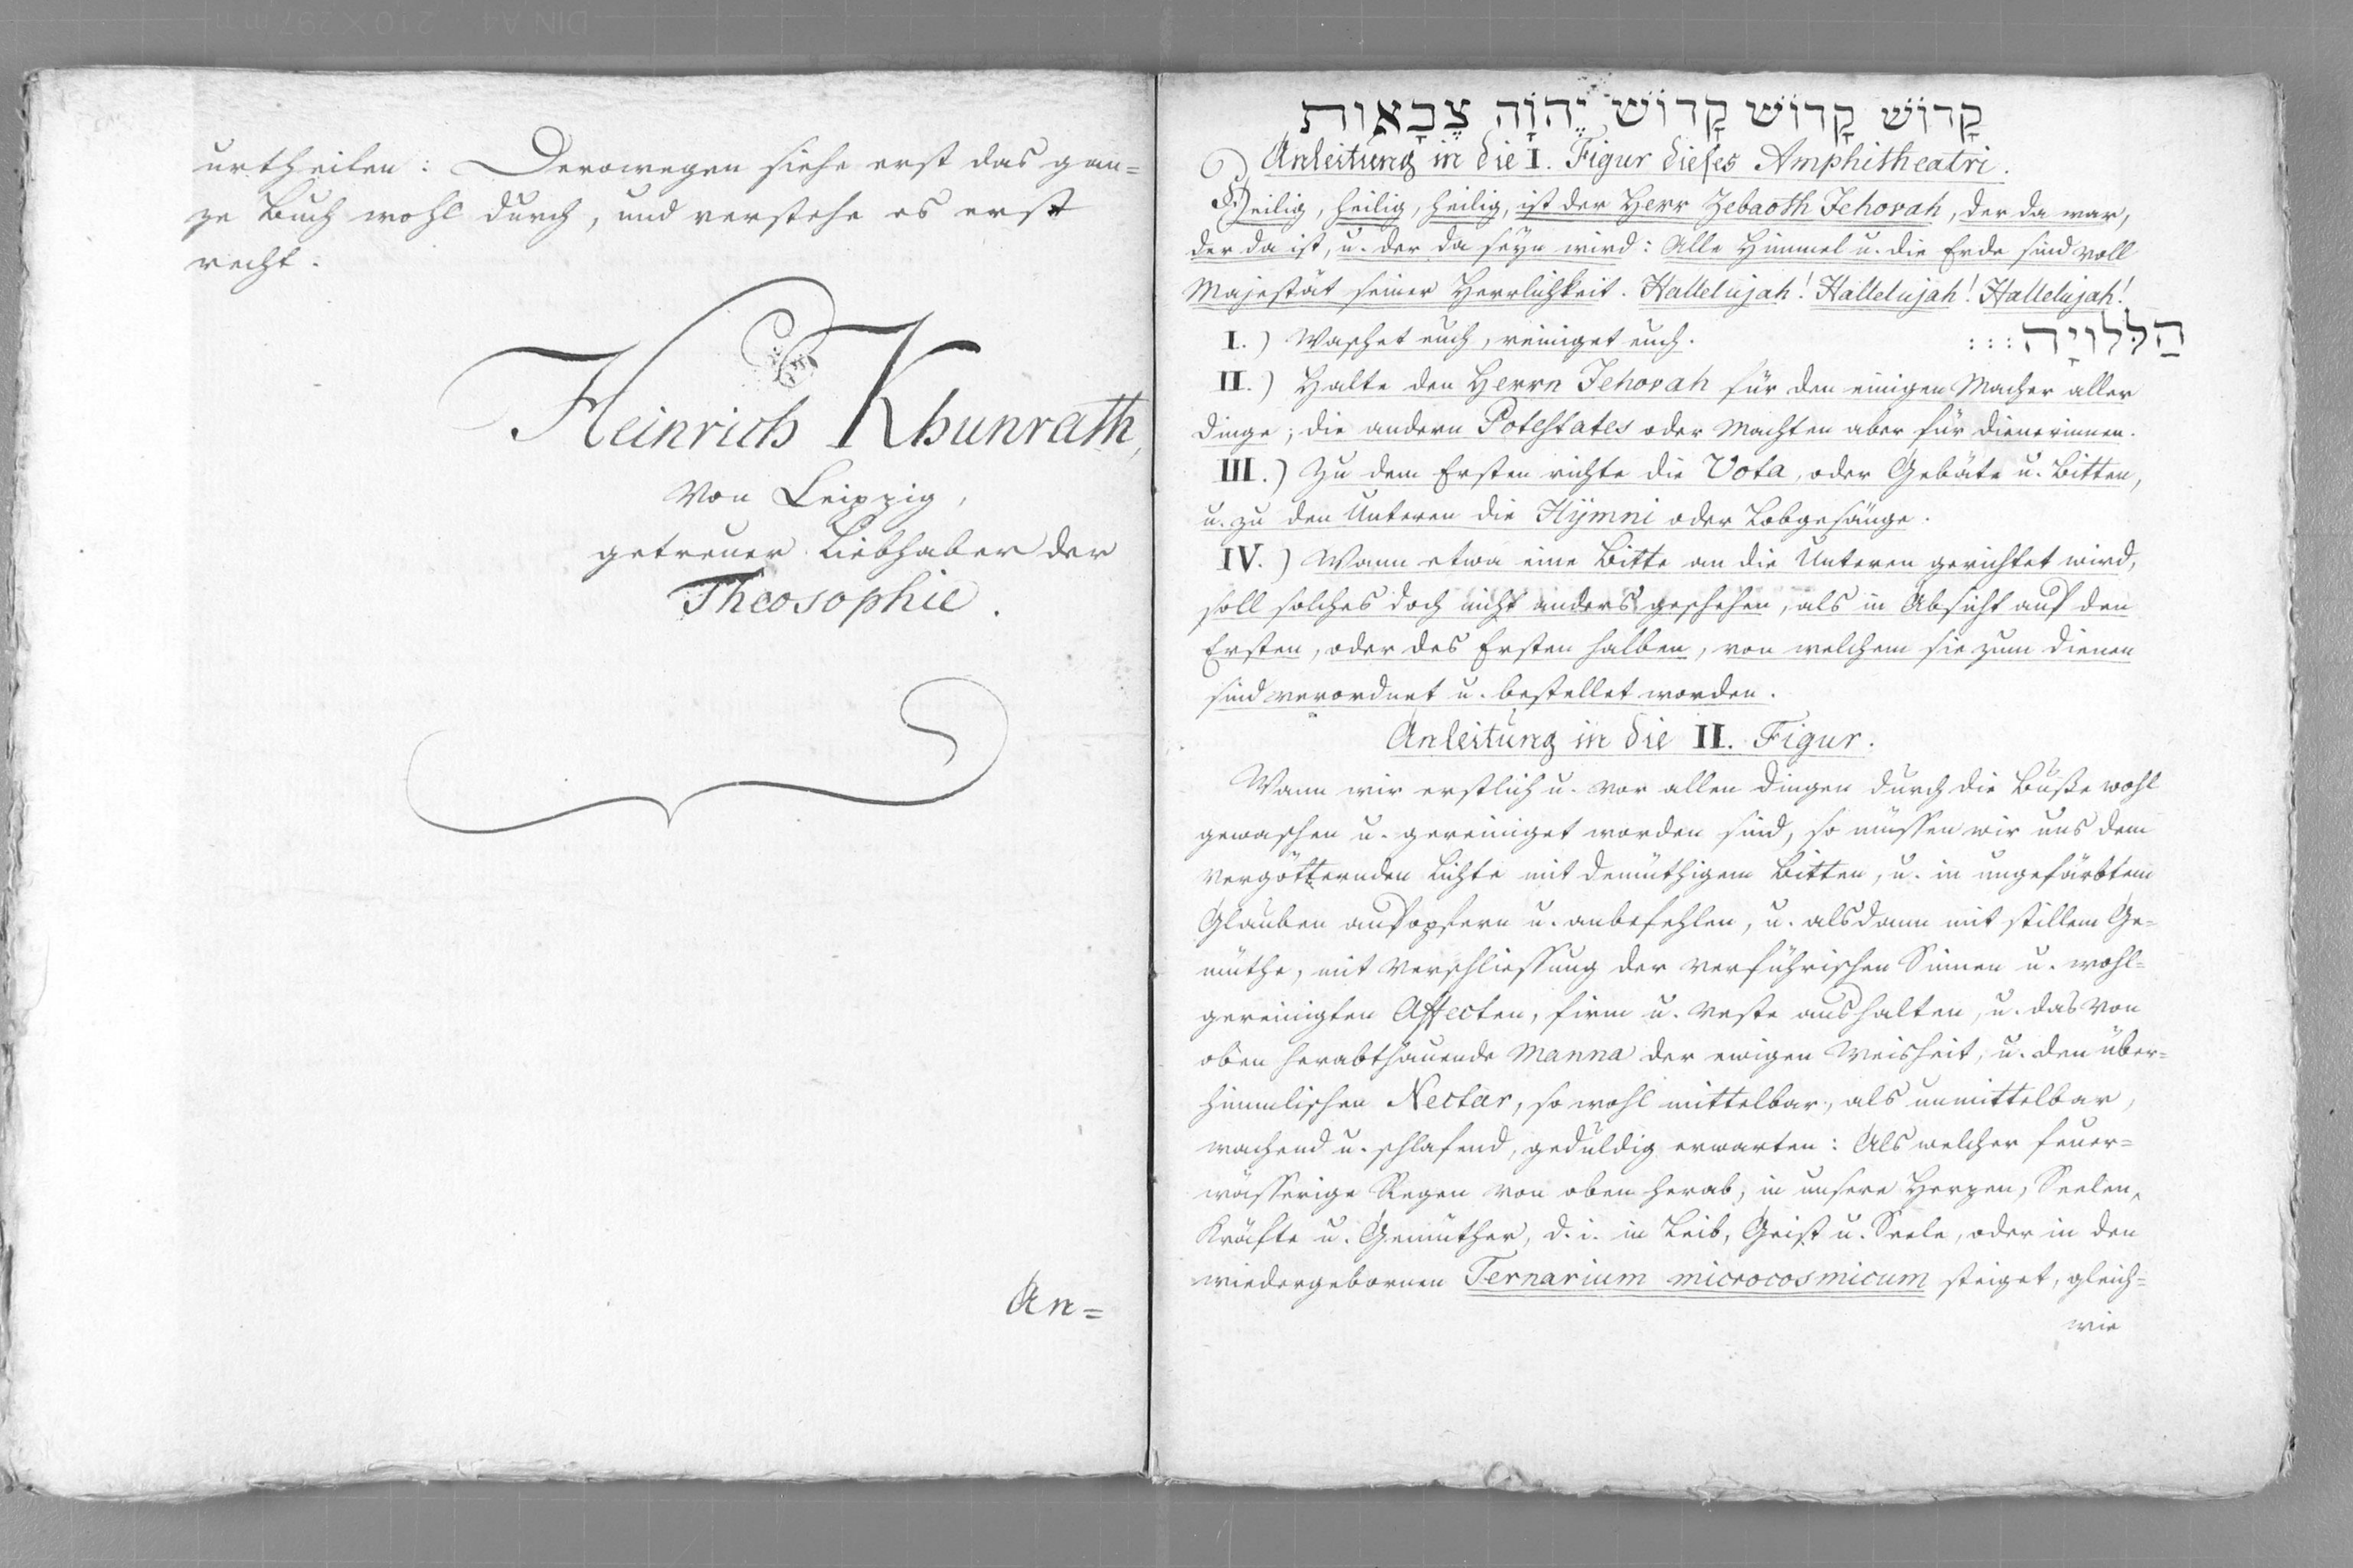 urtheilen: Derowegen siehe erst das gan=
ze Buch wohl durch, und verstehe es erst
recht.
Heinrich Khunrath,
von Leipzig,
getreuer Liebhaber der
Theosophie.
An=
קָדוֹשׁ קָדוֹשׁ קָדוֹשׁ יֱהוָֹה צֱבָאוֹת
Anleitung in die I. Figur dieses Amphitheatri.
Heilig, heilig, heilig, ist der Herr Zebaoth Jehovah, der da war,
der da ist, u. der da seyn wird: Alle Himmel u. die Erde sind voll
Majestät seiner Herrlichkeit. Hallelujah! Hallelujah! Hallelujah!
הַלְלוּיָהּ:::
I.) Waschet euch, reiniget euch.
II.) Halte den Herrn Jehovah für den einigen Macher aller
Dinge; die andern Potestates oder Machten aber für Dienerinnen.
III.) Zu dem Ersten richte die Vota, oder Gebäte u. Bitten,
u. zu den Unteren die Hÿmni oder Lobgesänge.
IV.) Wann etwa eine Bitte an die Unteren gerichtet wird,
soll solches doch nicht anders geschehen, als in Absicht auf den
Ersten, oder des Ersten halben, von welchem sie zum dienen
sind verordnet u. bestellet worden.
Anleitung in die II. Figur.
Wann wir erstlich u. vor allen Dingen durch die Buße wohl
gewaschen u. gereiniget worden sind, so müssen wir uns dem
vergötternden Lichte mit demüthigem Bitten, u. in ungefärbtem
Glauben aufopfern u. anbefehlen, u. alsdann mit stillem Ge=
müthe, mit Verschliessung der verführischen Sinnen u. wohl=
gereinigten Affecten, firm u. veste aushalten, u. das von
oben herabthauende Manna der ewigen Weisheit, u. den über=
himmlischen Nectar, so wohl mittelbar, als unmittelbar,
wachend u. schlafend, geduldig erwarten: Als welcher feuer=
wässerige Regen von oben herab, in unsere Herzen, Seelen,
Kräfte u. Gemüther, d. i. in Leib, Geist u. Seele, oder in den
wiedergebornen Ternarium microcosmicum steiget, gleich=
wie